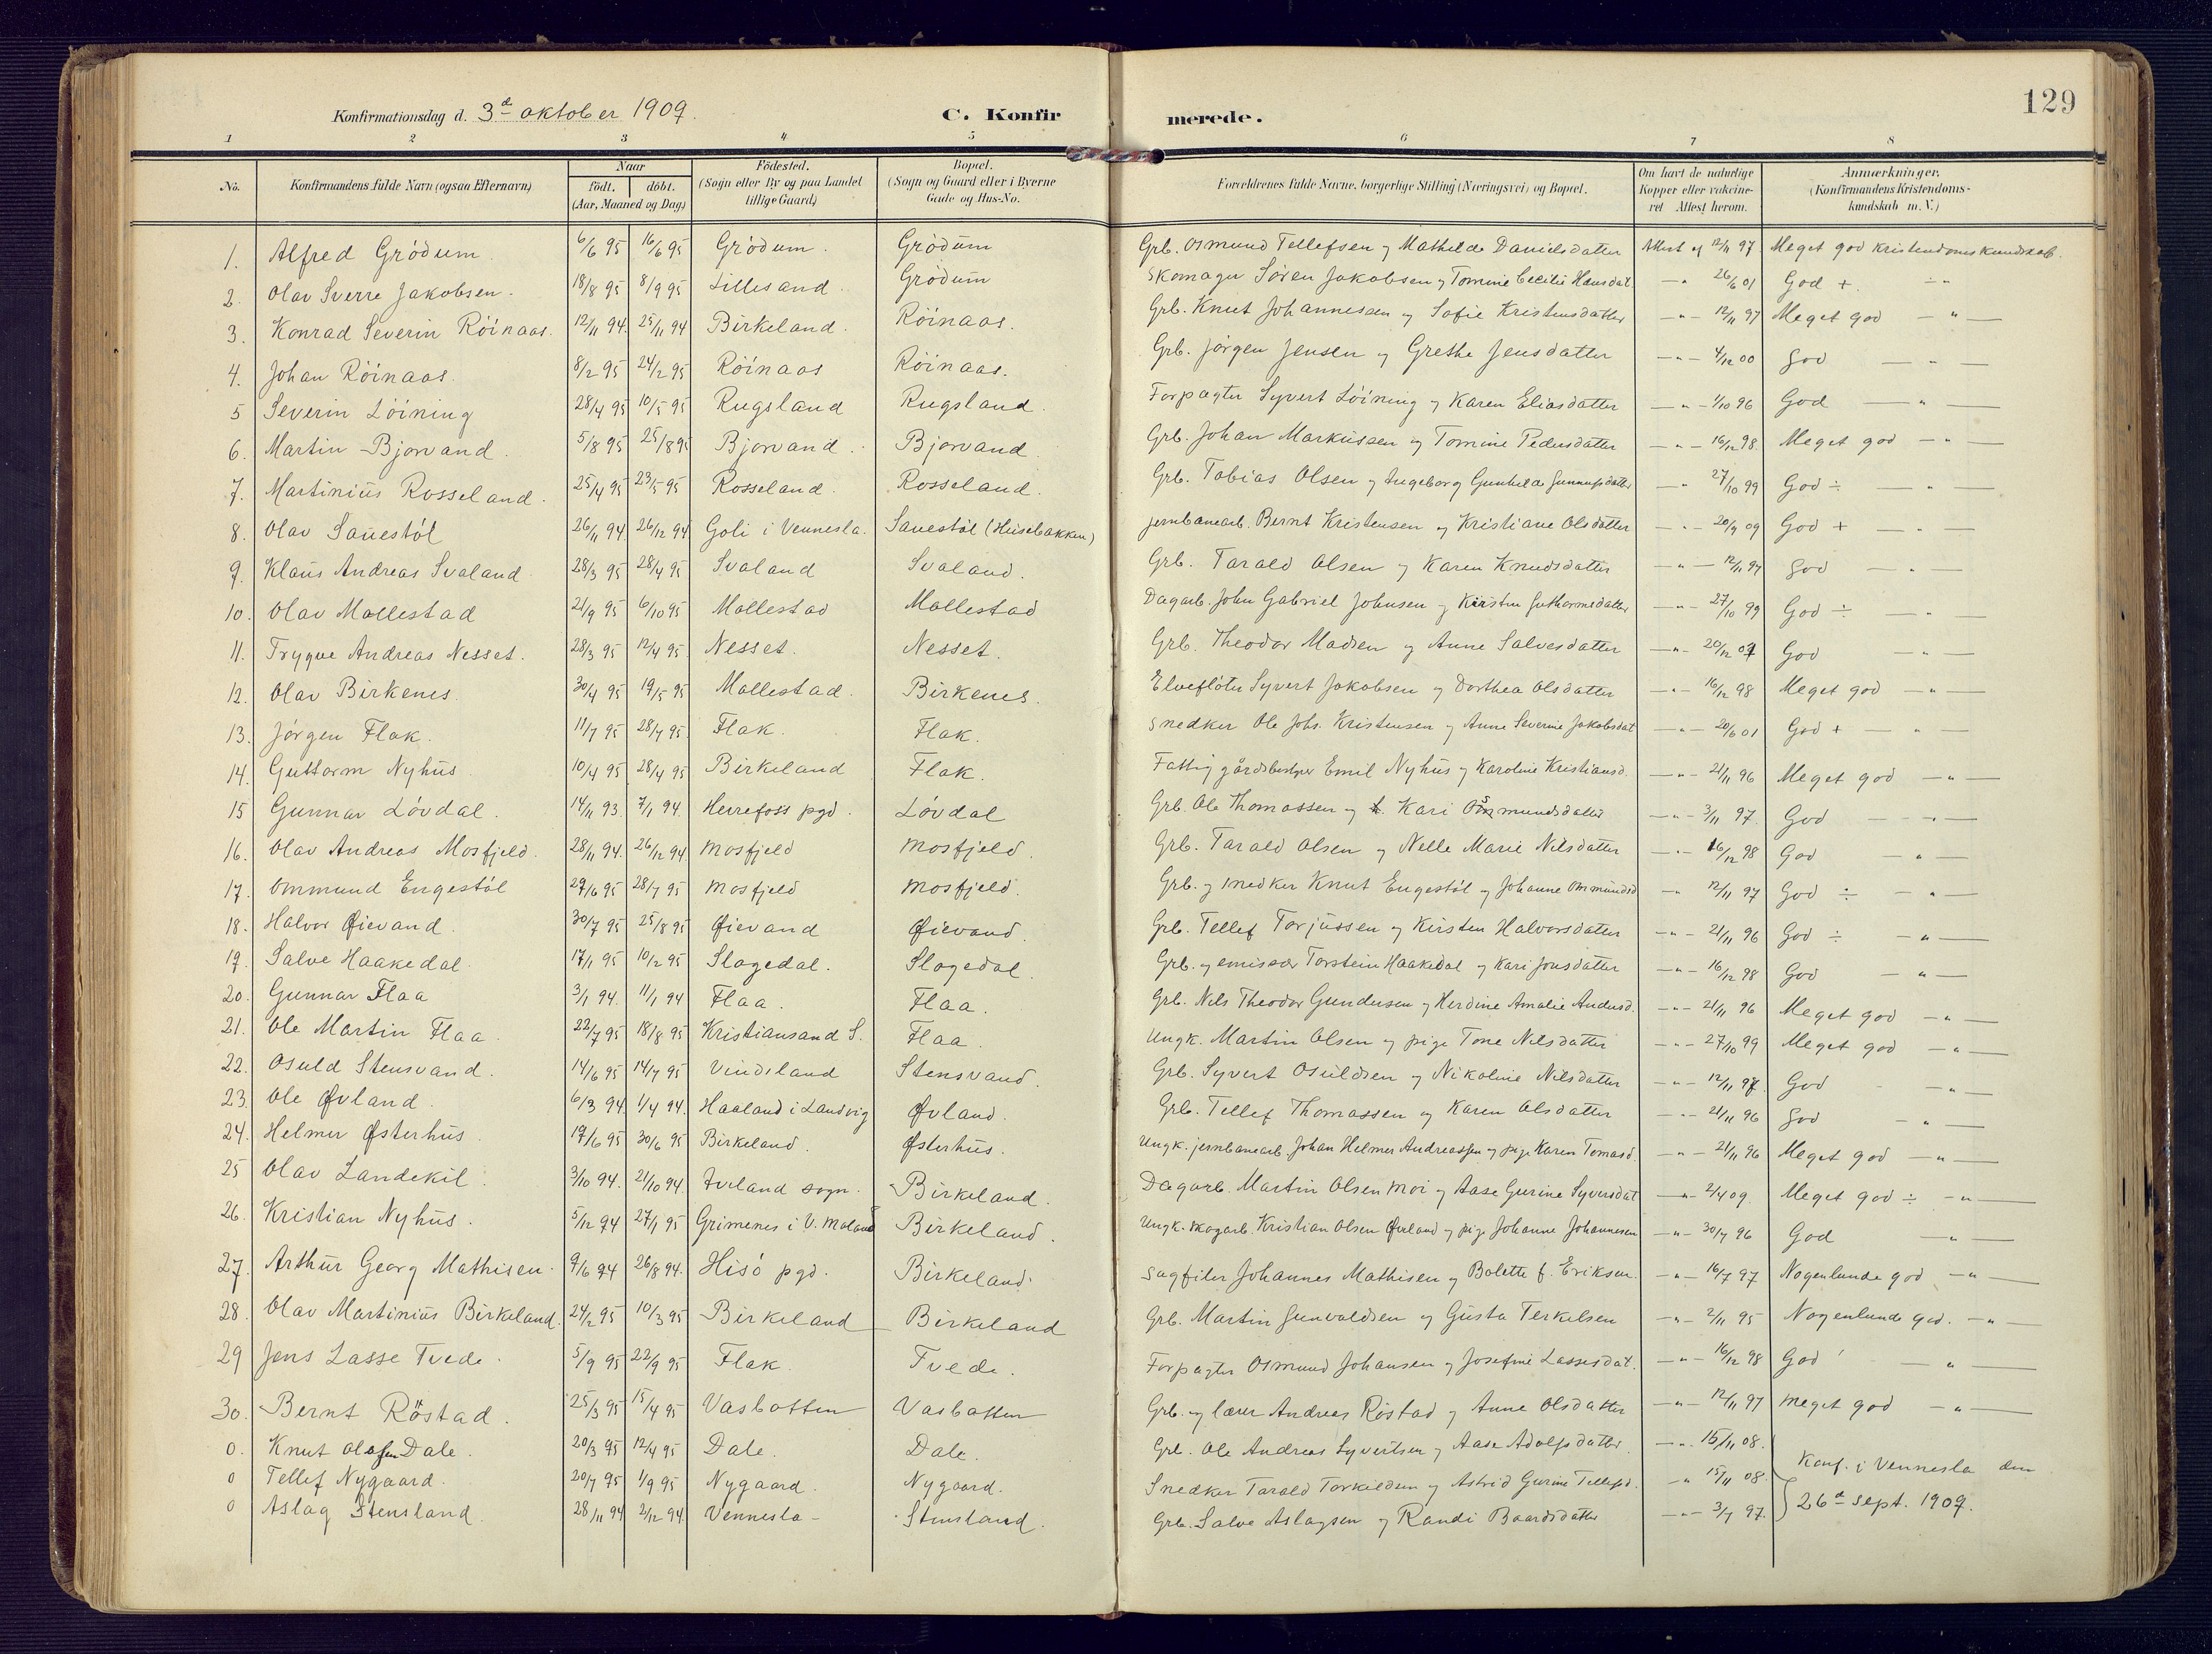 129
Konfirmationsdag d. 3d oktober 1909.
C. Konfirmerede.
1 2 3 4 5 6 7 8
No. Konfirmandens fulde Navn (ogsaa Efternavn) Naar født. døbt. (Aar, Maaned og Dag) Födested. (Sogn eller By og paa Landet tillige Gaard) Bopæl. (Sogn og Gaard eller i Byerne Gade og Hus-No. Forældrenes fulde Navne, borgerlige Stilling (Næringsvei) og Bopæl. Om havt de naturlige Kopper eller vakcineret Attest herom. Anmærkninger. (Konfirmandens Kristendomskundskab m. V.)
1. Alfred Grödum. 6/6 95 16/6 95 Grödum. Grödum Grb. Osmund Tellefsen og Mathilde Danielsdatter Attest af 12/11 97. Meget god kristendomskundskab.
2. Olav Sverre Jakobsen. 18/8 95 8/9 95 Lillesand. Grödum Skomager Sören Jakobsen og Tomine Cecilie Hansdat. — " 26/6 01 God +. — " —
3. Konrad Severin Röinaas. 12/11 94. 25/11 94 Birkeland. Röinaas. Grb. Knut Johannessen og Sofie Kristensdatter — " — 12/11 97 Meget god — " —
4. Johan Röinaas. 8/2 95 24/2 95 Röinaas Röinaas. Grb. Jörgen Jensen og Grethe Jensdatter — " — 4/12 00 God — " —
5 Severin Löining 28/4 95 10/5 95 Rugsland Rugsland. Forpagter Syvert Löining og Karen Eliasdatter — " — 1/10 96 God — " —
6. Martin Bjorvand. 5/8 95 25/8 95 Bjorvand. Bjorvand. Grb. Johan Markussen og Tomine Pedersdatter — " — 16/12 98. Meget god — " —
7. Martinius Rosseland. 25/4 95 23/5 95 Rosseland. Rosseland. Grb. Tobias Olsen og Ingeborg Gunhilda Gunnufsdatter — " 27/10 99 God ÷ — " —
8. Olav Sauestöl 26/11 94. 26/12 94 Goli i Vennesla. Sauestöl (Heisebakken) Jernbanearb. Bernt Kristensen og Kristiane Olsdatter — " — 20/9 09 God + — " —
9. Klaus Andreas Svaland 28/3 95 28/4 95 Svaland Svaland. Grb. Tarald Olsen og Karen Knudsdatter — " — 12/11 97 God — " —
10. Olav Mollestad 21/9 95 6/10 95 Mollestad Mollestad Dagarb. John Gabriel Johnsen og Kirsten Guthormsdatter — " — 27/10 99 God ÷ — " —
11. Trygve Andreas Nesset. 28/3 95 12/4 95. Nesset. Nesset. Grb. Theodor Madsen og Anne Salvesdatter — " — 20/12 07 God — " —
12. Olav Birkenes. 30/4 95 19/5 95 Mollestad. Birkenes. Elveflöter Syvert Jakobsen og Dorthea Olsdatter — " — 16/12 98 Meget god — " —
13. Jörgen Flak. 11/7 95 28/7 95. Flak. Flak. Snedker Ole Johs. Kristensen og Anne Severine Jakobsdat — " — 20/6 01 God + — " —
14. Guttorm Nyhus 10/4 95 28/4 95 Birkeland Flak. Fattiggårdsbestyrer Emil Nyhus og Karoline Kristiansd. — " — 21/11 96 Meget god — " —
15 Gunnar Lövdal. 14/11 93. 7/1 94. Herrefoss pgd. Lövdal Grb. Ole Thomassen og Kari Osmundsdatter — " — 3/11 97. God — " —
16. Olav Andreas Mosfjeld. 28/11 94. 26/12 94. Mosfjeld Mosfjeld. Grb. Tarald Olsen og Nelle Marie Nilsdatter — " — 16/12 98 God — " —
17. Ommund Engestöl 27/6 95 28/7 95 Mosfjeld Mosfjeld. Grb. og snedker Knut Engestöl og Johanne Ommundsd — " 12/11 97 God ÷ — " —
18. Halvor Øievand. 30/7 95 25/8 95 Øievand Øievand. Grb. Tellef Torjussen og Kirsten Halvorsdatter — " — 21/11 96 God ÷ — " —
19. Salve Haakedal. 17/1 95 10/2 95 Slogedal. Slogedal. Grb. og emissær Torstein Haakedal og Kari Jonsdatter — " — 16/12 98 God — " —
20. Gunnar Flaa 3/1 94. 11/1 94 Flaa. Flaa. Grb. Nils Theodor Gundersen og Herdine Amalie Andersd. — " — 21/11 96 Meget god — " —
21. Ole Martin Flaa 22/7 95 18/8 95 Kristiansand S. Flaa. Ungk. Martin Olsen og pige Tone Nilsdatter — " — 27/10 99 Meget god — " —
22. Osuld Stensvand. 14/6 95 14/7 95 Vindsland Stensvand. Grb. Syvert Osuldsen og Nikoline Nilsdatter — " — 12/11 97. God — " —
23. Ole Øvland. 6/3 94. 1/4 94. Haaland i Landvig Øvland. Grb. Tellef Thomassen og Karen Olsdatter — " — 21/11 96 God — " —
24. Helmer Østerhus. 17/6 95 30/6 95 Birkeland. Østerhus. Ungk. jernbanearb. Johan Helmer Andreassen og pige Karen Tomasd. — " — 21/11 96 Meget god — " —
25 Olav Landekil. 3/10 94. 21/10 94. Iveland sogn. Birkeland. Dagarb. Martin Olsen Moi og Aase Gurine Syversdat — " — 2/4 09. Meget god ÷ — " —
26. Kristian Nyhus. 5/12 94 27/1 95 Grimenes i V. Moland Birkeland. Ungk. skogarb. Kristian Olsen Øvland og pige Johanne Johannesen — " — 30/7 96 God — " —
27. Arthur Georg Mathisen. 9/6 94 26/8 94. Hisö pgd. Birkeland. Sagfiler Johannes Mathisen og Bolette f. Eriksen. — " — 16/7 97 Nogenlunde god — " —
28. Olav Martinius Birkeland. 24/2 95 10/3 95 Birkeland Birkeland Grb. Martin Gunvaldsen og Gusta Terkelsen — " — 2/11 95 Nogenlunde god. — " —
29 Jens Lasse Tvede. 5/9 95 22/9 95 Flak. Tvede. Forpagter Osmund Johansen og Josefine Lassesdat. — " — 16/12 98 God — " —
30. Bernt Röstad. 25/3 95 15/4 95 Vasbotten Vasbotten Grb. og lærer Andreas Röstad og Anne Olsdatter — " — 12/11 97 Meget god — " —
0. Knut Olafsen Dale. 20/3 95 12/4 95 Dale. Dale. Grb. Ole Andreas Syvertsen og Aase Adolfsdatter. — " 15/11 08.
0 Tellef Nygaard. 20/7 95 1/9 95 Nygaard. Nygaard. Snedker Tarald Torkildsen og Astrid Gurine Tellefsd. — " 15/11 08. Konf. i Vennesla den
0 Aslag Stensland. 28/11 94 2/12 94. Vennesla — Stensland. Grb. Salve Aslagsen og Randi Baardsdatter — " — 3/7 97. 26d sept. 1909.